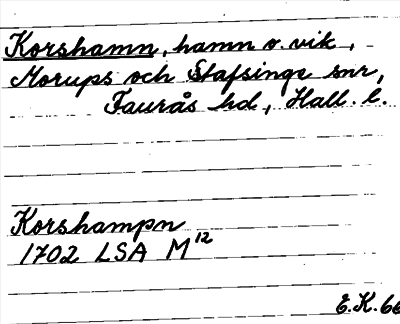 Korshamn, hamn o. vik,
Morups och Stafsinge snr,
Faurås hd, Hall. l.
Korshampn
1702 LSA M¹²
E.K. 66